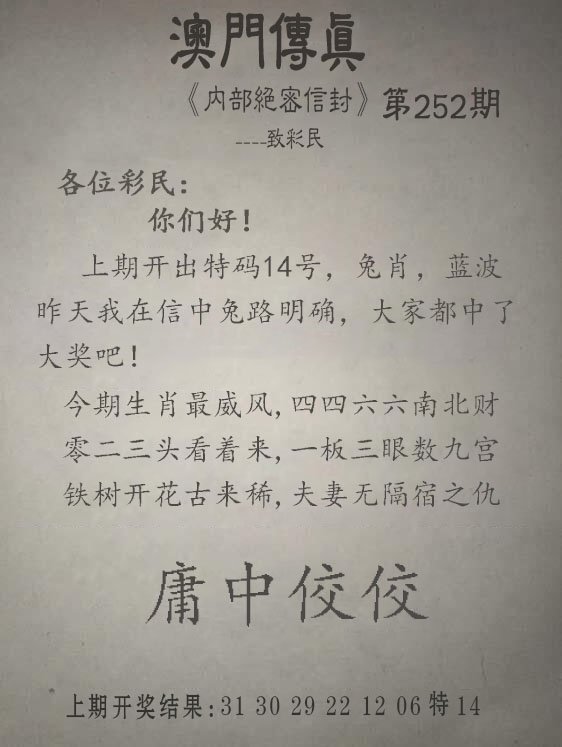 澳門傳眞
《内部絕密信封》第252期
----致彩民
各位彩民：
你们好！
上期开出特码14号，兔肖，蓝波
昨天我在信中兔路明确，大家都中了
大奖吧！
今期生肖最威风,四四六六南北财
零二三头看着来,一板三眼数九宫
铁树开花古来稀,夫妻无隔宿之仇
庸中佼佼
上期开奖结果:31 30 29 22 12 06 特 14